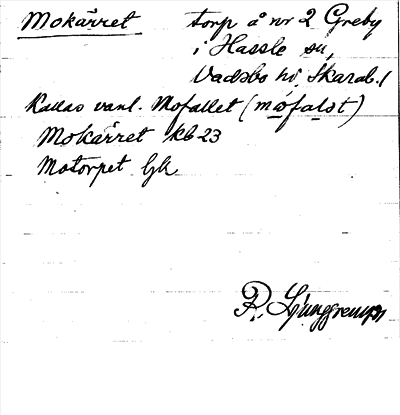 Mokärret torp å nr 2 Greby
i Hassle sn,
Vadsbo hd, Skarab. l
Kallas vanl. Mofallet (mófalət)
Mokärret kb 23
Motorpet Gk
R. Ljunggren